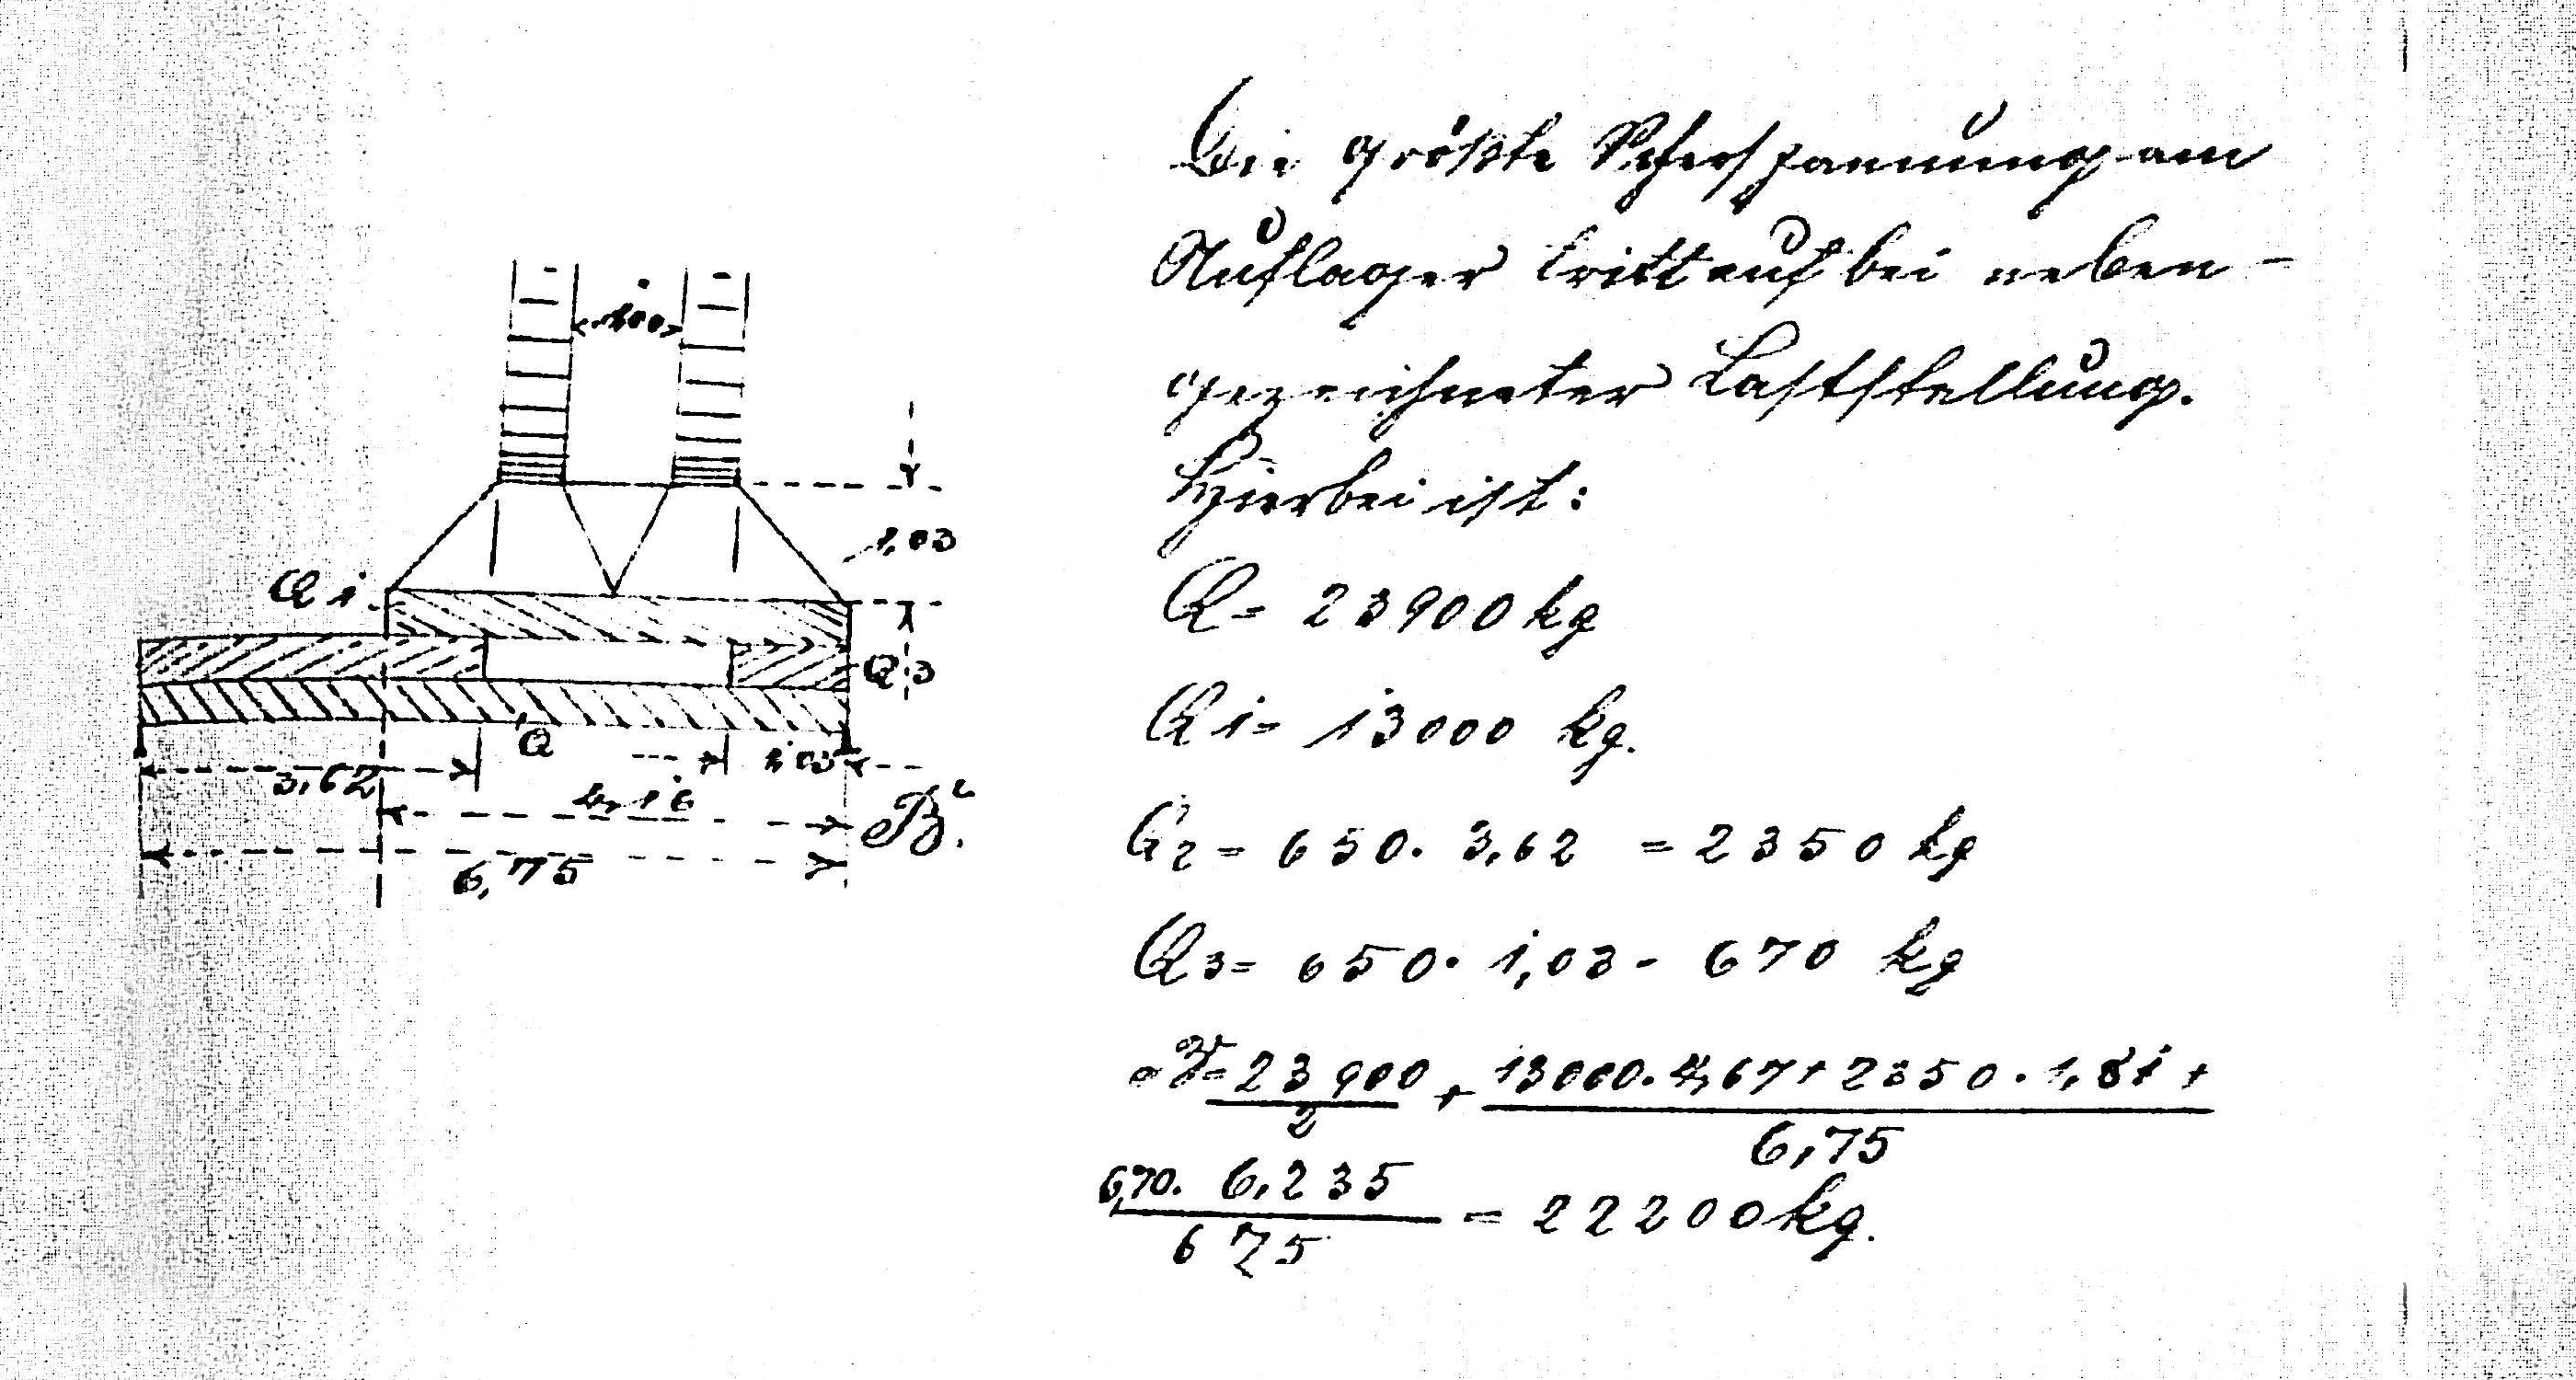 Die größte Scherspannung am
Auflager tritt auf bei neben-
gezeichneter Laststellung.
Hierbei ist:
Q = 23900 kg
Q1 = 13000 kg.
Q2 = 650. 3,62 = 2350 kg
Q3 = 650. 1,03 - 670 kg
= 23900 + 13000. 4,67 + 2350. 1,81 +
2
6,75
6,70. 6,235
= 22200 kg.
675
1,00
1,03
Q1
Q3
Q
1,03
3,62
4,16
B.
6,75